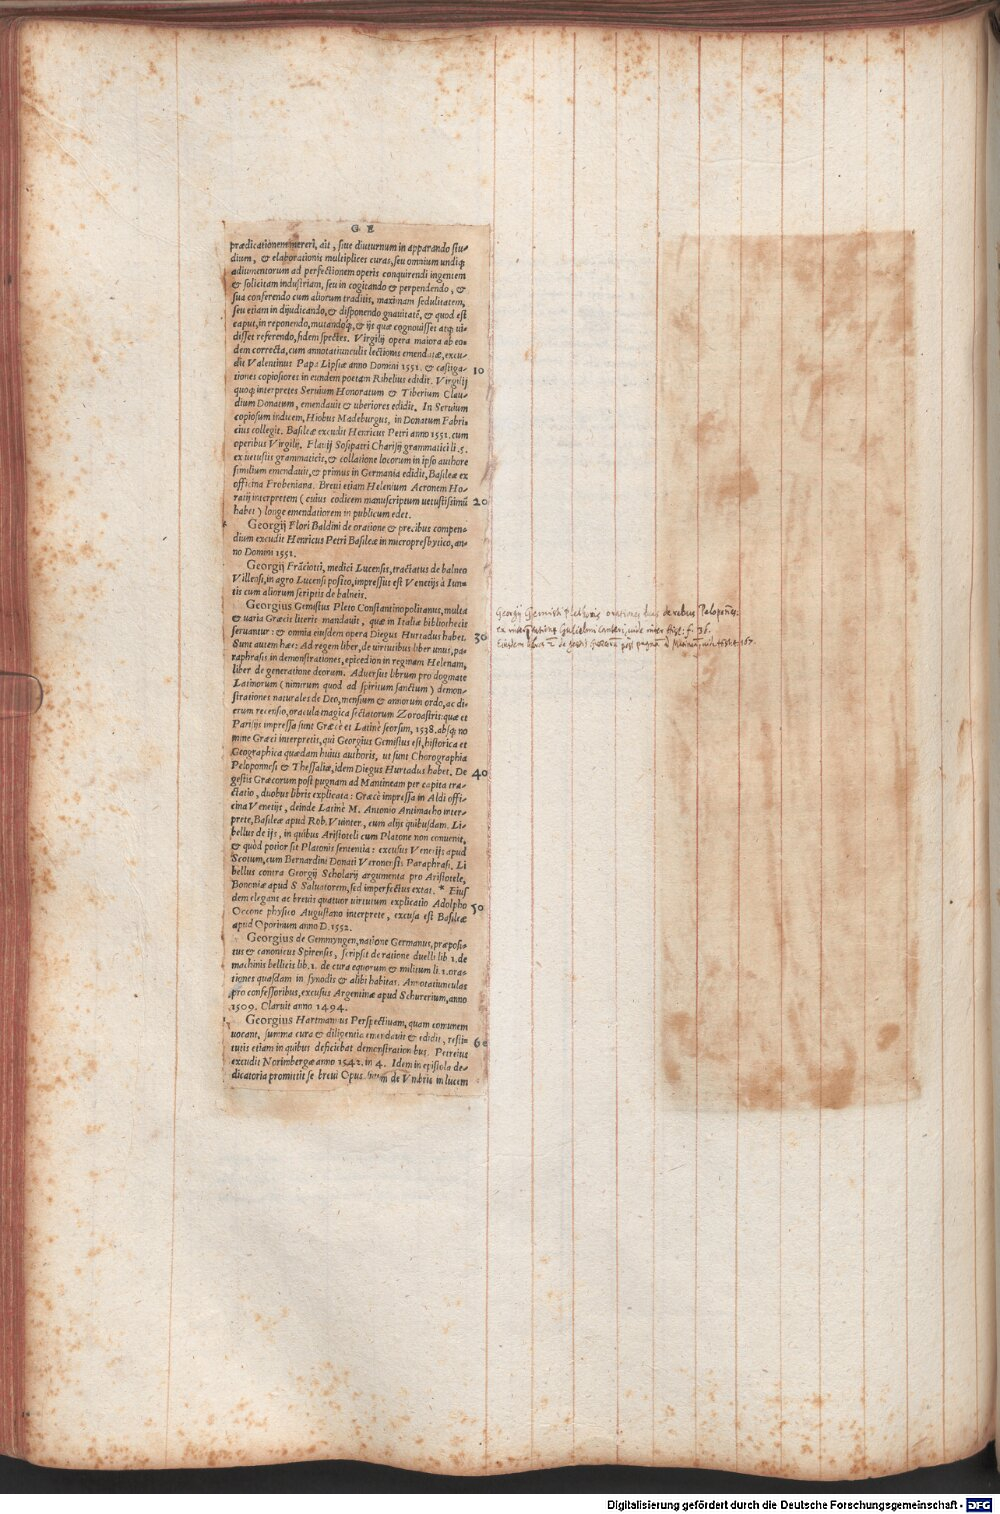 G E
prædicationem mereri, ait, siue diuturnum in apparando stu-
dium, & elaborationis multiplices curas, seu omnium undiq;
adiumentorum ad perfectionem operis conquirendi ingentem
& solicitam industriam, seu in cogitando & perpendendo, &
sua conferendo cum aliorum traditis, maximam sedulitatem,
seu etiam in dijudicando, & disponendo gnauitatē, & quod est
caput, in reponendo, mutandoq́;, & ijs quæ cognouisset atq; ui-
disset referendo, fidem spectes. Virgilij opera maiora ab eo-
dem correcta, cum annotatiunculis lectionis emendatæ, excu-
dit Valentinus Papa Lipsiæ anno Domini 1551. & castiga-
10
tiones copiosiores in eundem poetam Ribelius edidit. Virgilij
quoq; interpretes Seruium Honoratum & Tiberium Clau-
dium Donatum, emendauit & uberiores edidit. In Seruium
copiosum indicem, Hiobus Madeburgus, in Donatum Fabri-
cius collegit. Basileæ excudit Henricus Petri anno 1551. cum
operibus Virgilij. Flauij Sosipatri Charisij grammatici li. 5.
ex uetustis grammaticis, & collatione locorum in ipso authore
similium emendauit, & primus in Germania edidit, Basileæ ex
officina Frobeniana. Breui etiam Helenium Acronem Ho-
ratij interpretem (cuius codicem manuscriptum uetustissimū
20
habet) longe emendatiorem in publicum edet.
Georgij Flori Baldini de oratione & precibus compen-
dium excudit Henricus Petri Basileæ in micropresbytico, an-
no Domini 1551.
Georgij Frāciotti, medici Lucensis, tractatus de balneo
Villensi, in agro Lucensi posito, impressus est Venetijs à Iun-
tis cum aliorum scriptis de balneis.
Georgius Gemistus Pleto Constantinopolitanus, multa
& uaria Græcis literis mandauit, quæ in Italiæ bibliothecis
seruantur: & omnia eiusdem opera Diegus Hurtadus habet.
30
Sunt autem hæc: Ad regem liber, de uirtutibus liber unus, pa-
raphrasis in demonstrationes, epicedion in reginam Helenam,
liber de generatione deorum. Aduersus librum pro dogmate
Latinorum (nimirum quod ad spiritum sanctum) demon-
strationes naturales de Deo, mensium & annorum ordo, ac di-
erum recensio, oracula magica sectatorum Zoroastris: quæ et
Parisijs impressa sunt Græcè et Latinè seorsim, 1538. absq; no
mine Græci interpretis, qui Georgius Gemistus est, historica et
Geographica quædam huius authoris, ut sunt Chorographia
Peloponnesi & Thessaliæ, idem Diegus Hurtadus habet. De
40
gestis Græcorum post pugnam ad Mantineam per capita tra-
ctatio, duobus libris explicata: Græcè impressa in Aldi offi-
cina Venetijs, deinde Latinè M. Antonio Antimacho inter-
prete, Basileæ apud Rob. Vuinter, cum alijs quibusdam. Li-
bellus de ijs, in quibus Aristoteli cum Platone non conuenit,
& quòd potior sit Platonis sententia: excusus Venetijs apud
Scotum, cum Bernardini Donati Veronensis Paraphrasi. Li
bellus contra Georgij Scholarij argumenta pro Aristotele,
Bononiæ apud S. Saluatorem, sed imperfectus extat. * Eius
dem elegans ac breuis quatuor uirtutum explicatio Adolpho
50
Occone physico Augustano interprete, excusa est Basileæ
apud Oporinum anno D. 1552.
Georgius de Gemmyngen, natione Germanus, præposi-
tus & canonicus Spirensis, scripsit de ratione duelli lib. 1. de
machinis bellicis lib. 1. de cura equorum & militum li. 1. ora-
tiones quasdam in synodis & alibi habitas. Annotatiunculas
pro confessoribus, excusus Argentinæ apud Schurerium, anno
1509. Claruit anno 1494.
Georgius Hartmannus Perspectiuam, quam comunem
uocant, summa cura & diligentia emendauit & edidit, resti-
60
tutis etiam in quibus deficiebat demonstrationibus. Petreius
excudit Norimbergæ anno 1542. in 4. Idem in epistola de-
dicatoria promittit se breui Opusculum de Vmbris in lucem
Georgij Gemisti Plethonis orationes duæ de rebus Peloponnes:
ex interpretatione Gulielmi Canteri, vide inter Hist: f. 36.
Eiusdem libros 2 de gestis Græcorū post pugnam ad Mantineam, 167.
Digitalisierung gefördert durch die Deutsche Forschungsgemeinschaft - DFG